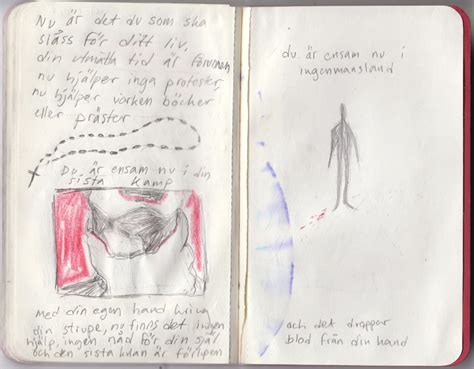 Nu är det du som ska
slåss för ditt liv,
din utmätta tid är försvunnen
nu hjälper inga protester,
nu hjälper varken böcher
eller präster
Du är ensam nu i din
sista kamp
med din egen hand kring
din strupe, nu finns det ingen
hjälp, ingen nåd för din själ
och den sista kulan är förlupen
du är ensam nu i
ingenmansland
och det droppar
blod från din hand